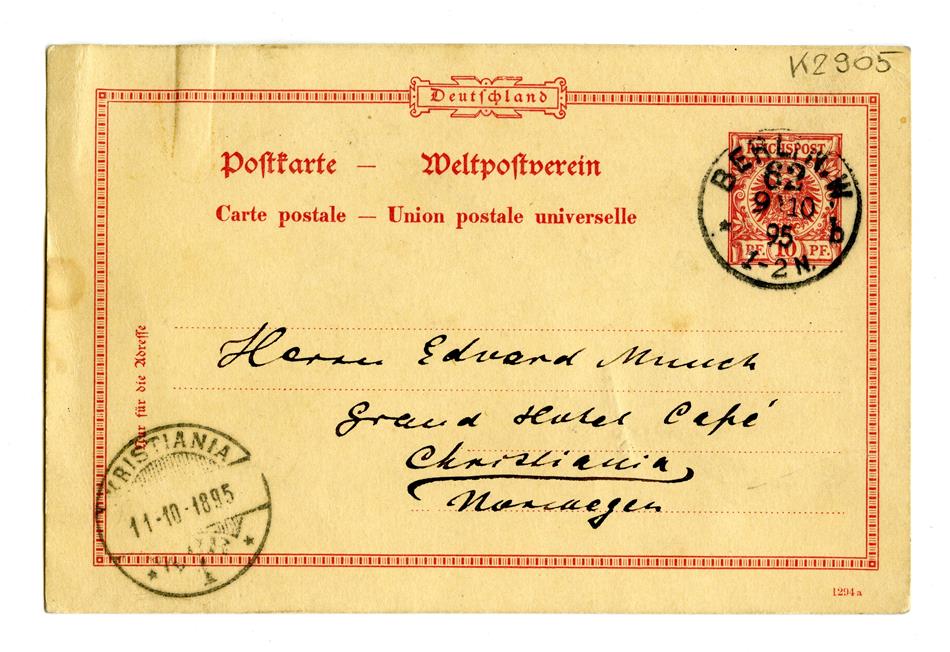 K2905
Deutschland
Postkarte — Weltpostverein
Carte postale — Union postale universelle
REICHSPOST
PF. 10 PF.
BERLIN. W
62
9 10
95 b
1-2 N.
Nur für die Adresse
Herrn Edvard Munch
Grand Hotel Café
Christiania
Norwegen
KRISTIANIA
11-10-1895
1294a